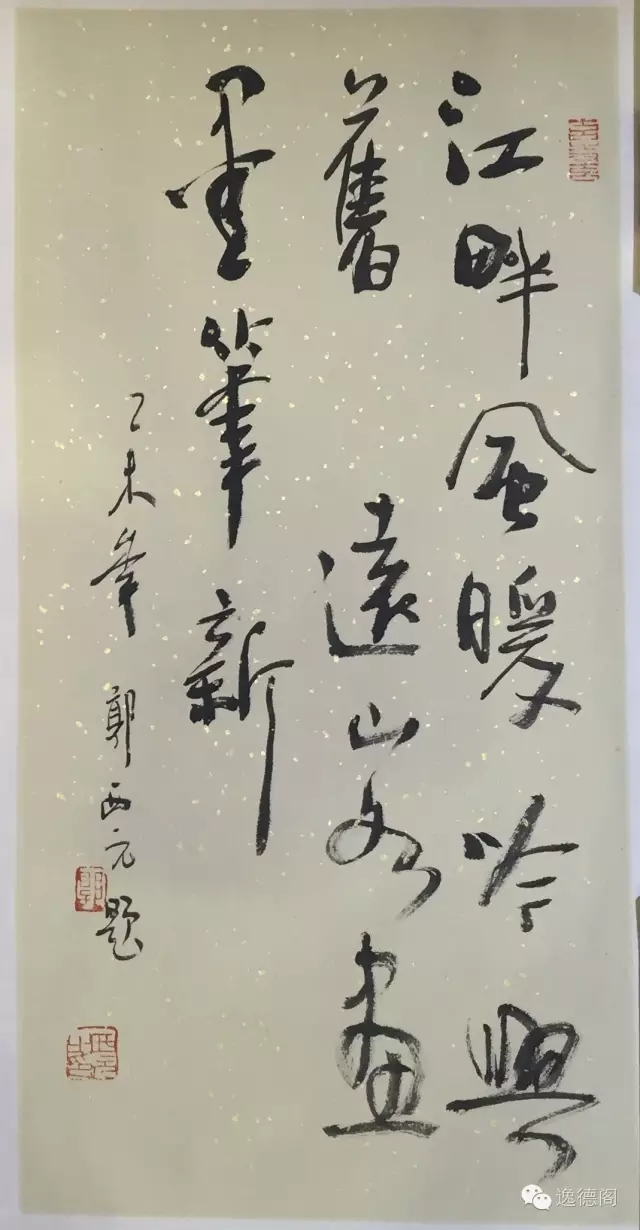 江畔風暖吟興
舊遠山畫
墨筆新
乙未年 郭西元題
逸德阁